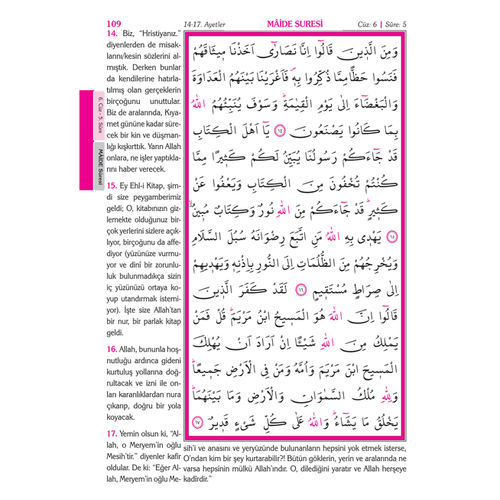 109
14-17. Ayetler
MÂİDE SURESİ
Cüz: 6 | Sûre: 5
14. Biz, “Hristiyanız.”
diyenlerden de misak-
larını/kesin sözlerini al-
mıştık. Derken bunlar
da kendilerine hatırla-
tılmış olan gerçeklerin
birçoğunu unuttular.
Biz de aralarında, Kıya-
met gününe kadar süre-
cek bir kin ve düşman-
lığı kışkırttık. Yarın Allah
onlara, ne işler yaptıkla-
rını haber verecek.
15. Ey Ehl-i Kitap, şim-
di size peygamberimiz
geldi; O, kitabınızın giz-
lemekte olduğunuz bir-
çok yerlerini sizlere açık-
lıyor, birçoğunu da affe-
diyor (yüzünüze vurmu-
yor ve dinî bir zorunlu-
luk bulunmadıkça sizin
iç yüzünüzü ortaya ko-
yup utandırmak istemi-
yor). İşte size Allah’tan
bir nur, bir parlak kitap
geldi.
16. Allah, bununla hoş-
nutluğu ardınca gideni
kurtuluş yollarına doğ-
rultacak ve izni ile on-
ları karanlıklardan nura
çıkarıp, doğru bir yola
koyacak.
17. Yemin olsun ki, “Al-
lah, o Meryem’in oğlu
Mesih’tir.” diyenler kafir
oldular. De ki: “Eğer Al-
lah, Meryem’in oğlu Me-
sih’i ve anasını ve yeryüzünde bulunanların hepsini yok etmek isterse,
O’ndan kim bir şey kurtarabilir?! Bütün göklerin, yerin ve aralarında ne
varsa hepsinin mülkü Allah’ındır. O, dilediğini yaratır ve Allah herşeye
kadirdir.”
6. Cüz - 5. Sûre
MÂİDE Suresi
وَمِنَ الَّذ۪ينَ قَالُٓوا اِنَّا نَصَارٰٓى اَخَذْنَا م۪يثَاقَهُمْ
فَنَسُوا حَظًّا مِمَّا ذُكِّرُوا بِه۪ۖ فَاَغْرَيْنَا بَيْنَهُمُ الْعَدَاوَةَ
وَالْبَغْضَٓاءَ اِلٰى يَوْمِ الْقِيٰمَةِۜ وَسَوْفَ يُنَبِّئُهُمُ اللّٰهُ
بِمَا كَانُوا يَصْنَعُونَ ﴿١٤﴾ يَٓا اَهْلَ الْكِتَابِ
قَدْ جَٓاءَكُمْ رَسُولُنَا يُبَيِّنُ لَكُمْ كَث۪يرًا مِمَّا
كُنْتُمْ تُخْفُونَ مِنَ الْكِتَابِ وَيَعْفُوا عَنْ
كَث۪يرٍۜ قَدْ جَٓاءَكُمْ مِنَ اللّٰهِ نُورٌ وَكِتَابٌ مُب۪ينٌۙ
﴿١٥﴾ يَهْد۪ي بِهِ اللّٰهُ مَنِ اتَّبَعَ رِضْوَانَهُ سُبُلَ السَّلَامِ
وَيُخْرِجُهُمْ مِنَ الظُّلُمَاتِ اِلَى النُّورِ بِاِذْنِه۪ وَيَهْد۪يهِمْ
اِلٰى صِرَاطٍ مُسْتَق۪يمٍ ﴿١٦﴾ لَقَدْ كَفَرَ الَّذ۪ينَ
قَالُٓوا اِنَّ اللّٰهَ هُوَ الْمَس۪يحُ ابْنُ مَرْيَمَۜ قُلْ فَمَنْ
يَمْلِكُ مِنَ اللّٰهِ شَيْـًٔا اِنْ اَرَادَ اَنْ يُهْلِكَ
الْمَس۪يحَ ابْنَ مَرْيَمَ وَاُمَّهُ وَمَنْ فِي الْاَرْضِ جَم۪يعًاۜ
وَلِلّٰهِ مُلْكُ السَّمٰوَاتِ وَالْاَرْضِ وَمَا بَيْنَهُمَاۜ
يَخْلُقُ مَا يَشَٓاءُۜ وَاللّٰهُ عَلٰى كُلِّ شَيْءٍ قَد۪يرٌ ﴿١٧﴾